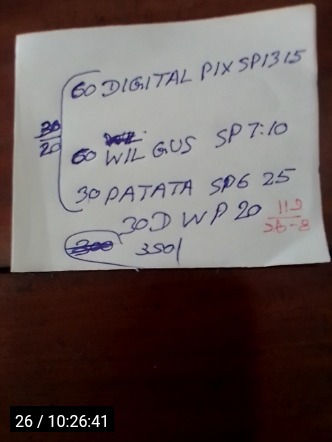 60 DIGITAL PIX SP1315
30
20
60 WIL GUS SP7:10
30 PATATA SP6 25
30D WP 20
112
350/
26 / 10:26:41